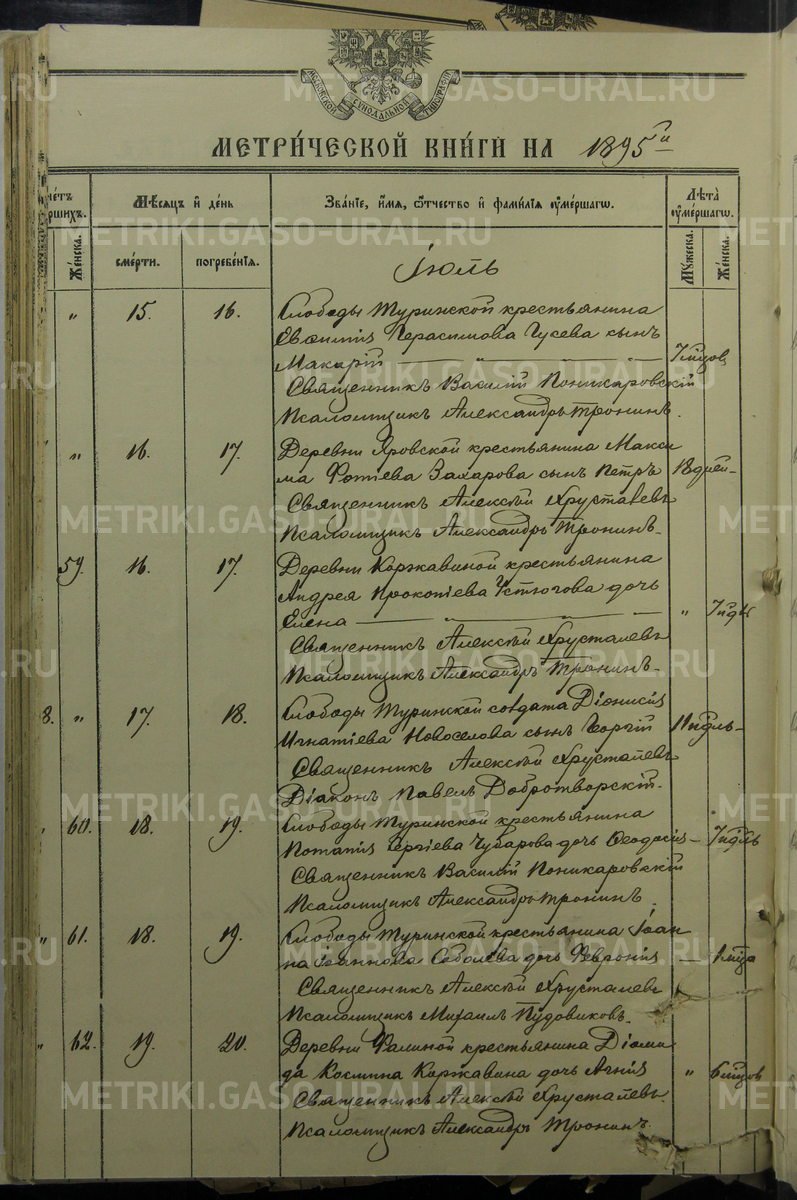 МОСКОВСКОЙ СѴНОДАЛЬНОЙ ТИПОГРАФІИ
МЕТРИ́ЧЕСКОЙ КНИ́ГИ НА 1895 г.
Мѣ́сяцъ и де́нь
Зва́нїе, и́мя, ѻ҆́тчество и фами́лїя ᲂу҆ме́ршагѡ.
Лѣ́та ᲂу҆ме́ршагѡ.
Же́нска.
сме́рти.
погребе́нїя.
Му́жеска.
Же́нска.
Іюль
" 15. 16. Слободы Туринской крестьянина
Евѳимія Герасимова Гусева сынъ
Макарій — " — " — " — 7 мѣсцов
Священникъ Василій Поникаровскій
Псаломщикъ Александръ Тронинъ.
" 16. 17. Деревни Яровской крестьянина Макси
ма Фотіева Захарова сынъ Петръ 18 дней
Священникъ Алексѣй Хрусталевъ
Псаломщикъ Александръ Тронинъ.
59. 16. 17. Деревни Коржавиной крестьянина
Андрея Прокопіева Устюгова дочь
Елена — " — " — " — "
Священникъ Алексѣй Хрусталевъ
Псаломщикъ Александръ Тронинъ.
8. " 17. 18. Слободы Туринской солдата Діонисія
Игнатіева Новоселова сынъ Георгій
Священникъ Алексѣй Хрусталевъ
Діаконъ Павелъ Добротворскій.
60. 18. 19. Слободы Туринской крестьянина
Потапія Сергіева Чубарова дочь Ѳеодосія —
Священникъ Василій Поникаровскій
Псаломщикъ Александръ Тронинъ.
" 61. 18. 19. Слободы Туринской крестьянина Іоан
на Іоаннова Соболева дочь Февронія —
Священникъ Алексѣй Хрусталевъ
Псаломщикъ Михаилъ Пудовиковъ.
" 62. 19. 20. Деревни Фалиной крестьянина Діоми
да Космина Коржавина дочь Агнія " 6 мѣсцов
Священникъ Алексѣй Хрусталевъ.
Псаломщикъ Александръ Тронинъ.
METRIKI.GASO-URAL.RU